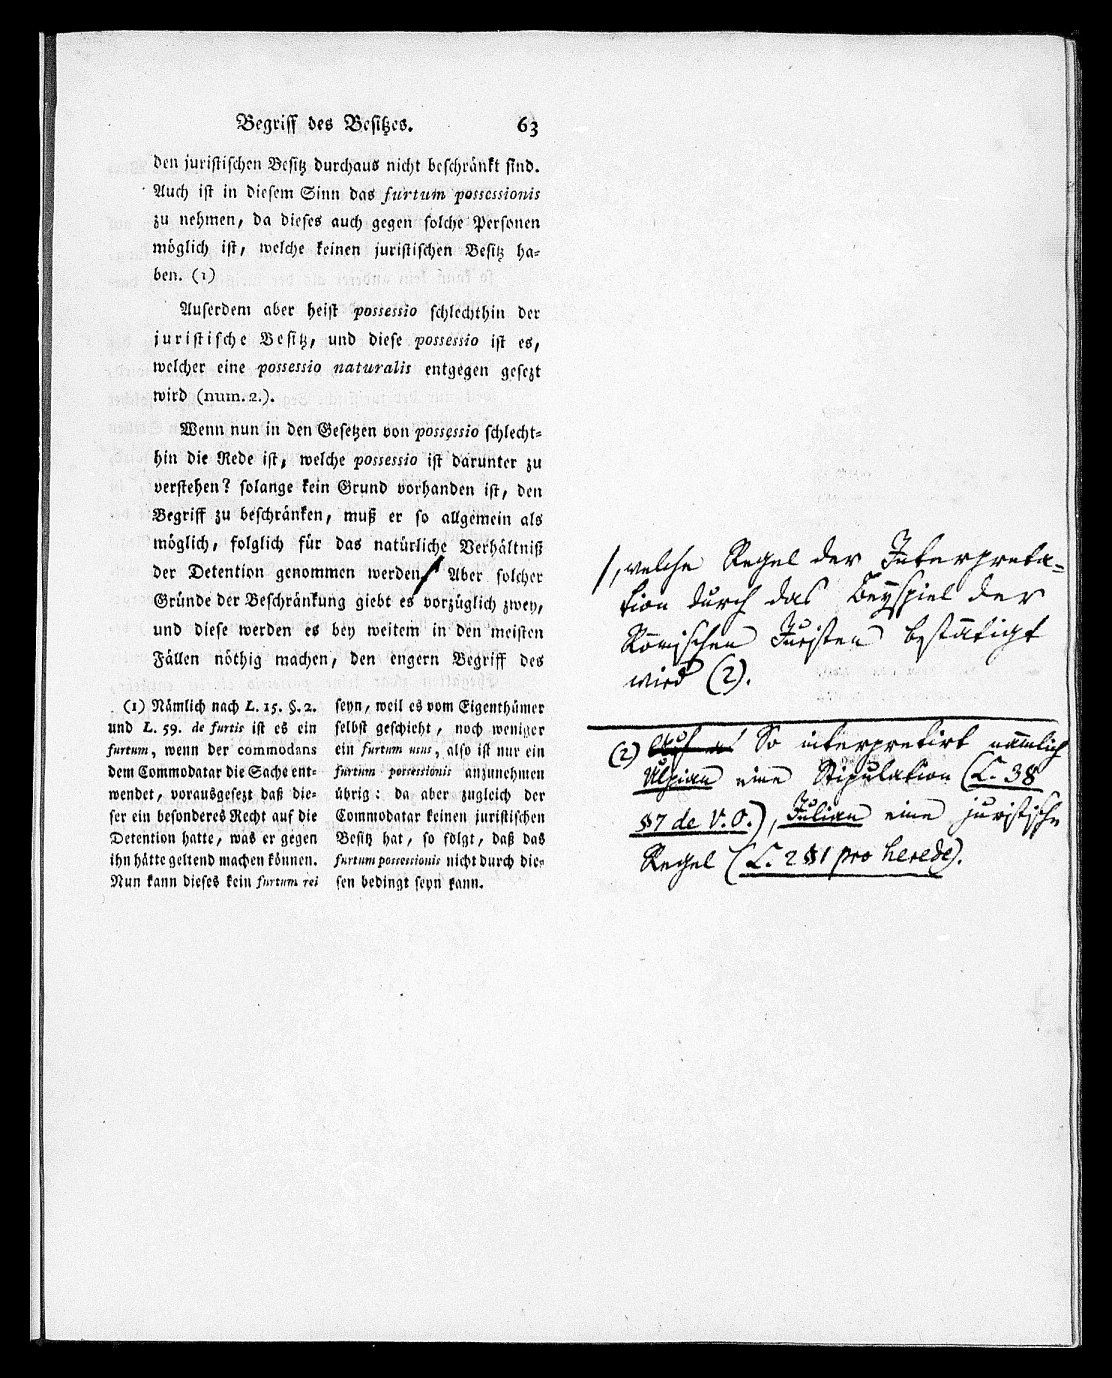 Begriff des Besitzes. 63
den juristischen Besitz durchaus nicht beschränkt sind.
Auch ist in diesem Sinn das furtum possessionis
zu nehmen, da dieses auch gegen solche Personen
möglich ist, welche keinen juristischen Besitz ha-
ben. (1)
Auserdem aber heist possessio schlechthin der
juristische Besitz, und diese possessio ist es,
welcher eine possessio naturalis entgegen gesezt
wird (num. 2.).
Wenn nun in den Gesetzen von possessio schlecht-
hin die Rede ist, welche possessio ist darunter zu
verstehen? solange kein Grund vorhanden ist, den
Begriff zu beschränken, muß er so allgemein als
möglich, folglich für das natürliche Verhältniß
der Detention genommen werden/ Aber solcher
Gründe der Beschränkung giebt es vorzüglich zwey,
und diese werden es bey weitem in den meisten
Fällen nöthig machen, den engern Begriff des
(1) Nämlich nach L. 15. §. 2.
und L. 59. de furtis ist es ein
furtum, wenn der commodans
dem Commodatar die Sache ent-
wendet, vorausgesezt daß die-
ser ein besonderes Recht auf die
Detention hatte, was er gegen
ihn hätte geltend machen können.
Nun kann dieses kein furtum rei
seyn, weil es vom Eigenthümer
selbst geschieht, noch weniger
ein furtum usus, also ist nur ein
furtum possessionis anzunehmen
übrig: da aber zugleich der
Commodatar keinen juristischen
Besitz hat, so folgt, daß das
furtum possessionis nicht durch die-
sen bedingt seyn kann.
/, welche Regel der Interpreta-
tion durch das Beyspiel der
Römischen Juristen bestätigt
wird (2).
(2) So interpretirt nämlich
Ulpian eine Stipulation (L. 38
§7 de V. O.), Julian eine juristische
Regel (L. 2 §1 pro herede).